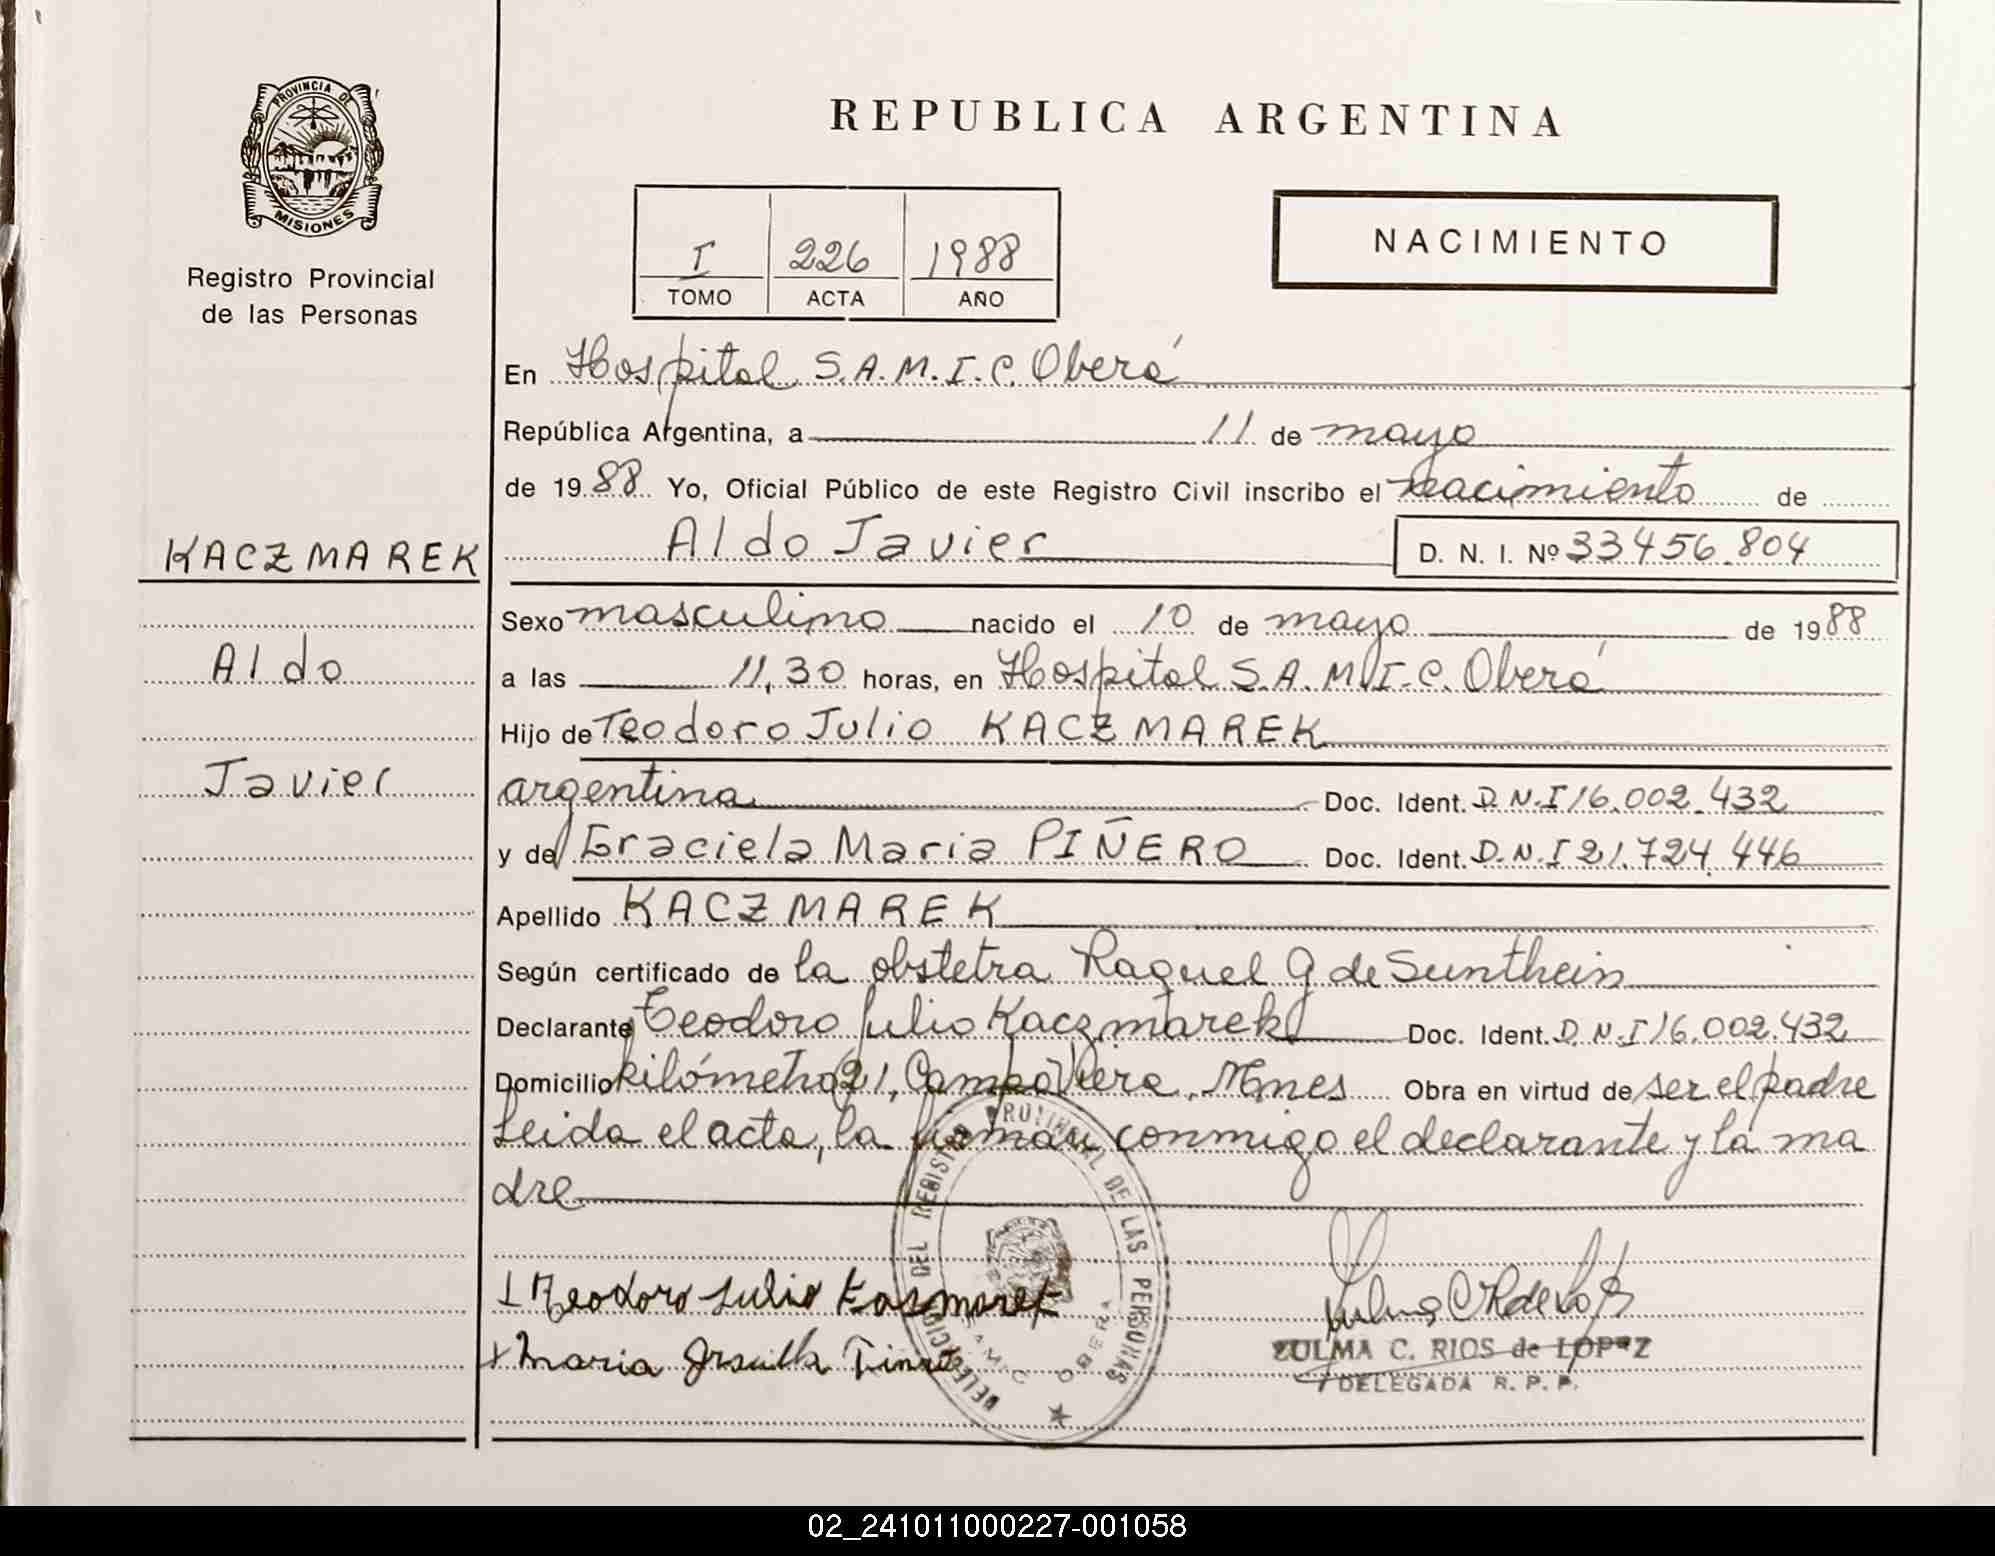 PROVINCIA DE
MISIONES
Registro Provincial
de las Personas
REPUBLICA ARGENTINA
I 226 1988
TOMO ACTA AÑO
NACIMIENTO
En Hospital S.A.M.I.C. Oberá
República Argentina, a 11 de mayo
de 1988 Yo, Oficial Público de este Registro Civil inscribo el nacimiento de
KACZMAREK
Aldo Javier D. N. I. Nº 33456.804
Sexo masculino nacido el 10 de mayo de 1988
Aldo
a las 11,30 horas, en Hospital S.A.M.I.C. Oberá
Hijo de Teodoro Julio KACZMAREK
Javier
argentina Doc. Ident. D.N.I 16.002.432
y de Graciela Maria PIÑERO Doc. Ident. D.N.I 21.724.446
Apellido KACZMAREK
Según certificado de la obstetra Raquel G de Sunthein
Declarante Teodoro Julio Kaczmarek Doc. Ident. D.N.I 16.002.432
Domicilio kilómetro 21, Campo Viera, Mnes Obra en virtud de ser el padre
Leida el acta, la firman conmigo el declarante y la ma
dre
DELEGACION DEL REGISTRO PROVINCIAL DE LAS PERSONAS
OBERA
Teodoro Julio
Maria
ZULMA C. RIOS de LOPEZ
DELEGADA R. P. P.
02_241011000227-001058